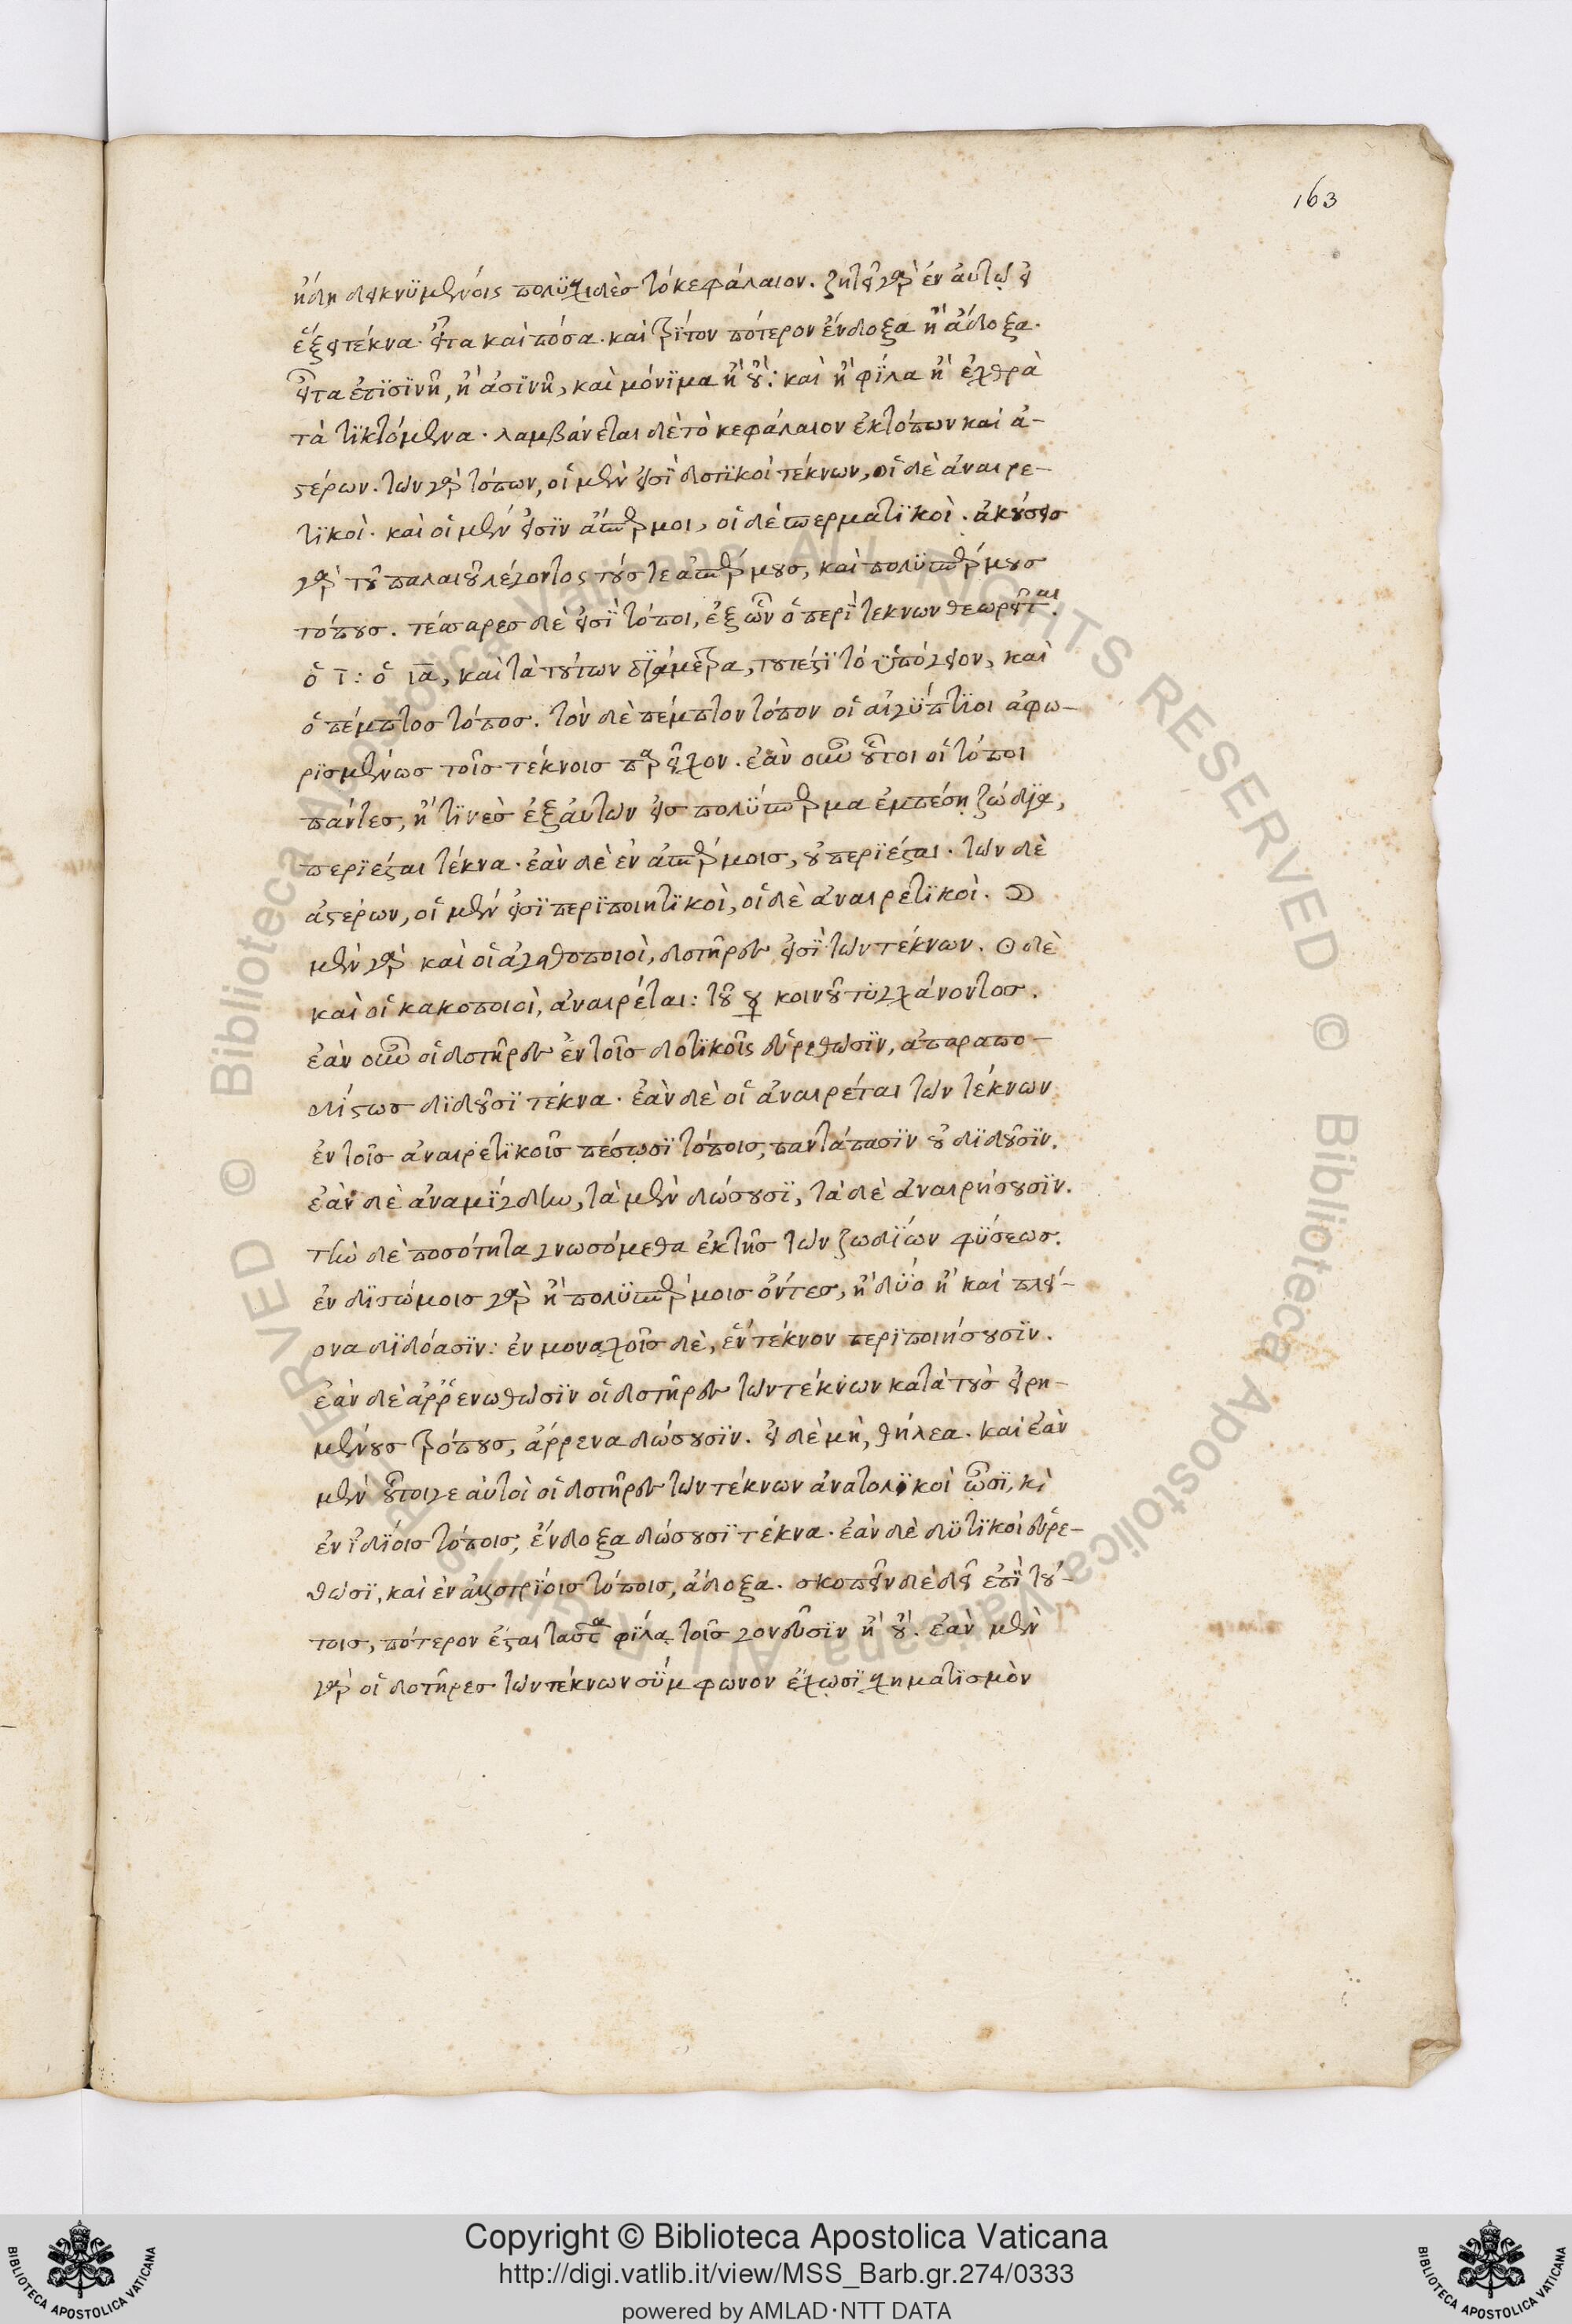 163
ἤδη δεικνυμένοις πολυσχιδὲς τὸ κεφάλαιον. ζητεῖ γὰρ ἐν αὐτῷ εἰ
ἕξει τέκνα. εἶτα καὶ πόσα. καὶ τρίτον πότερον ἔνδοξα ἢ ἄδοξα.
εἶτα ἐπισινῆ, ἢ ἀσινῆ, καὶ μόνιμα ἢ οὔ: καὶ ἢ φίλα ἢ ἐχθρὰ
τὰ τικτόμενα. λαμβάνεται δὲ τὸ κεφάλαιον ἐκ τόπων καὶ ἀ-
στέρων. τῶν γὰρ τόπων, οἱ μὲν εἰσὶ δοτικοὶ τέκνων, οἱ δὲ ἀναιρε-
τικοὶ. καὶ οἱ μὲν εἰσὶν ἄσπερμοι, οἱ δὲ σπερματικοὶ. ἀκούσεις
γὰρ τοῦ παλαιοῦ λέγοντος τούς τε ἀσπέρμους, καὶ πολυσπέρμους
τόπους. τέσσαρες δὲ εἰσὶ τόποι, ἐξ ὧν ὁ περὶ τέκνων θεωρεῖται.
ὁ ι: ὁ ια, καὶ τὰ τούτων διάμετρα, τουτέστι τὸ ὑπόγειον, καὶ
ὁ πέμπτος τόπος. τὸν δὲ πέμπτον τόπον οἱ αἰγύπτιοι ἀφω-
ρισμένως τοῖς τέκνοις παρεῖχον. ἐὰν οὖν οὗτοι οἱ τόποι
πάντες, ἤ τινες ἐξ αὐτῶν εἰς πολύσπερμα ἐμπέσῃ ζώδια,
περιέσται τέκνα. ἐὰν δὲ ἐν ἀσπέρμοις, οὐ περιέσται. τῶν δὲ
ἀστέρων, οἱ μέν εἰσι περιποιητικοὶ, οἱ δὲ ἀναιρετικοὶ. ☽
μὲν γὰρ καὶ οἱ ἀγαθοποιοὶ, δοτῆρες εἰσὶ τῶν τέκνων. ☉ δὲ
καὶ οἱ κακοποιοὶ, ἀναιρέται: τοῦ ☿ κοινοῦ τυγχάνοντος.
ἐὰν οὖν οἱ δοτῆρες ἐν τοῖς δοτικοῖς εὑρεθῶσιν, ἀπαραπο-
δίστως διδοῦσι τέκνα. ἐὰν δὲ οἱ ἀναιρέται τῶν τέκνων
ἐν τοῖς ἀναιρετικοῖς πέσωσι τόποις, παντάπασιν οὐ διδοῦσιν.
ἐὰν δὲ ἀναμίγδην, τὰ μὲν δώσουσι, τὰ δὲ ἀναιρήσουσιν.
τὴν δὲ ποσότητα γνωσόμεθα ἐκ τῆς τῶν ζωδίων φύσεως.
ἐν δισώμοις γὰρ ἢ πολυσπέρμοις ὄντες, ἢ δύο ἢ καὶ πλεί-
ονα διδόασιν: ἐν μοναχοῖς δὲ, ἓν τέκνον περιποιήσουσιν.
ἐὰν δὲ ἀρρενωθῶσιν οἱ δοτῆρες τῶν τέκνων κατὰ τοὺς εἰρη-
μένους τρόπους, ἄρρενα δώσουσιν. εἰ δὲ μὴ, θήλεα. καὶ ἐὰν
μὲν οὗτοι γε αὐτοὶ οἱ δοτῆρες τῶν τέκνων ἀνατολικοὶ ὦσι, κὶ
ἐν ἰδίοις τόποις, ἔνδοξα δώσουσι τέκνα. ἐὰν δὲ δυτικοὶ εὑρε-
θῶσι, καὶ ἐν ἀλλοτρίοις τόποις, ἄδοξα. σκοπεῖν δὲ δεῖ ἐπὶ τού-
τοις, πότερον ἔσται ταῦτα φίλα τοῖς γονεῦσιν ἢ οὔ. ἐὰν μὲν
γὰρ οἱ δοτῆρες τῶν τέκνων σύμφωνον ἔχωσι σχηματισμὸν
© Biblioteca Apostolica Vaticana ALL RIGHTS RESERVED © Biblioteca Apostolica Vaticana ALL RIGHTS RESERVED
BIBLIOTECA APOSTOLICA VATICANA
Copyright © Biblioteca Apostolica Vaticana
http://digi.vatlib.it/view/MSS_Barb.gr.274/0333
powered by AMLAD·NTT DATA
BIBLIOTECA APOSTOLICA VATICANA